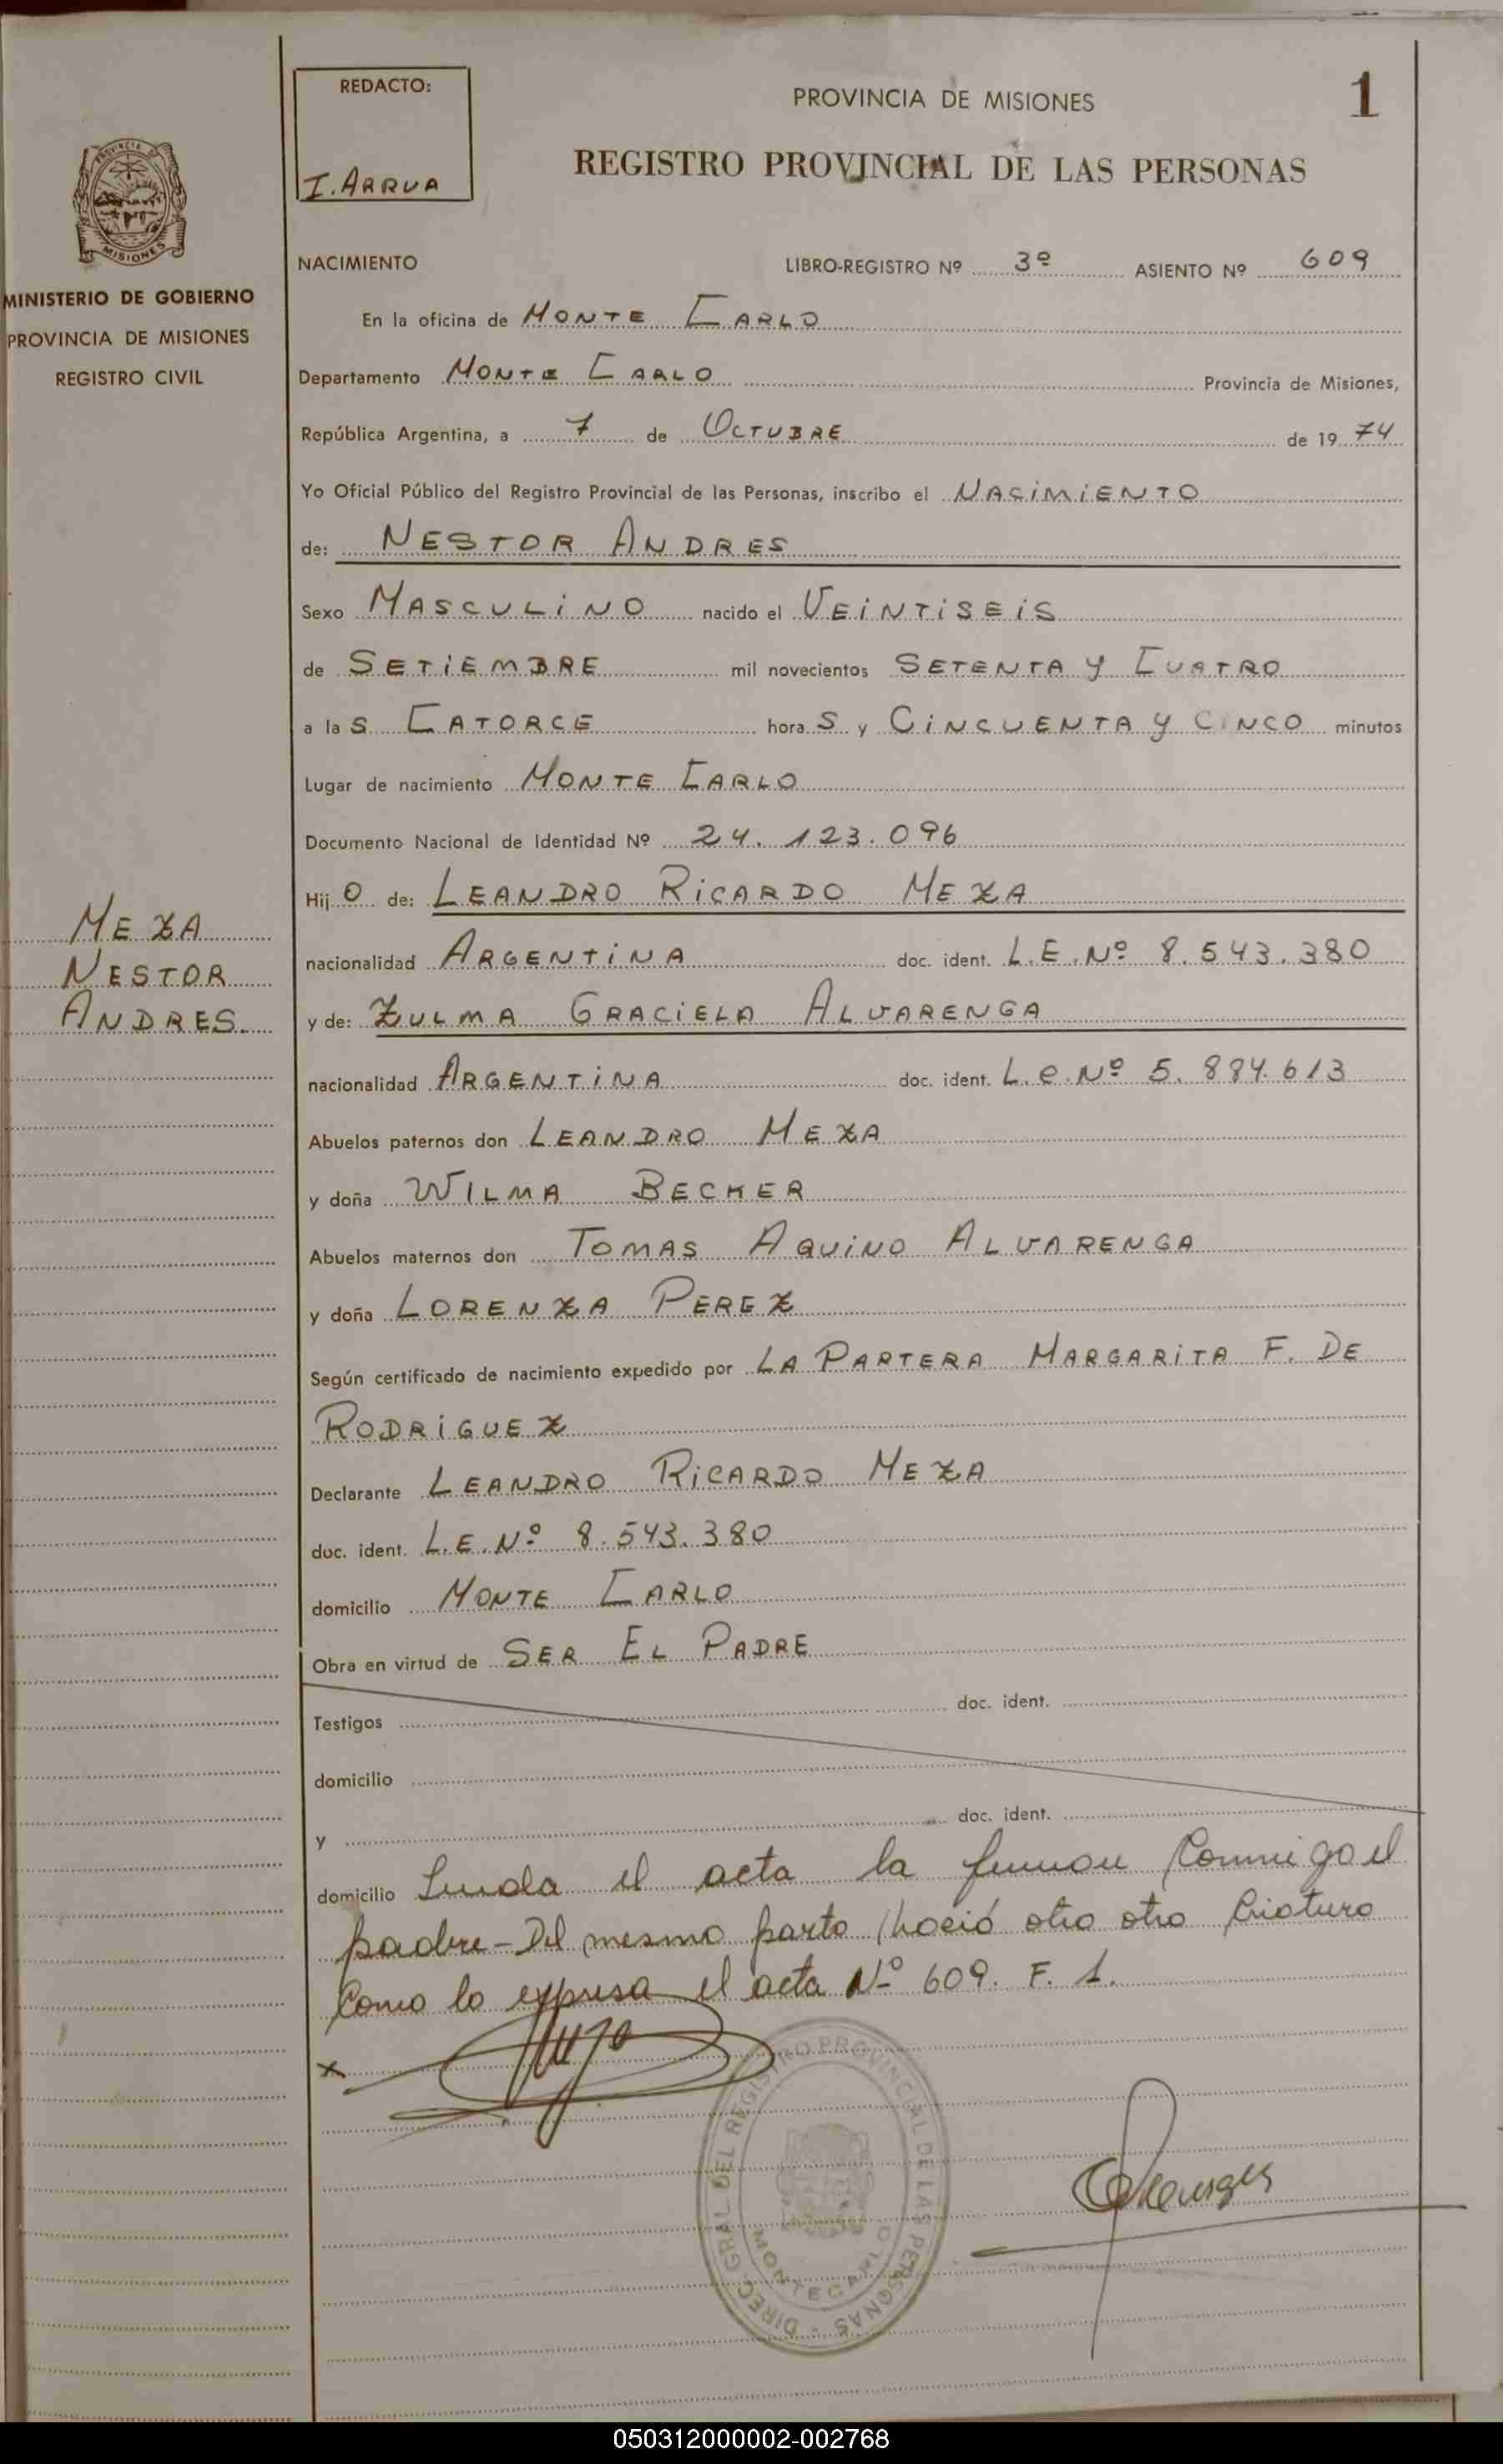 REDACTO:
I. ARRUA
PROVINCIA DE MISIONES
1
REGISTRO PROVINCIAL DE LAS PERSONAS
PROVINCIA DE
MISIONES
MINISTERIO DE GOBIERNO
PROVINCIA DE MISIONES
REGISTRO CIVIL
NACIMIENTO LIBRO-REGISTRO Nº 3º ASIENTO Nº 609
En la oficina de MONTE CARLO
Departamento MONTE CARLO Provincia de Misiones,
República Argentina, a 7 de OCTUBRE de 19 74
Yo Oficial Público del Registro Provincial de las Personas, inscribo el NACIMIENTO
de: NESTOR ANDRES
Sexo MASCULINO nacido el VEINTISEIS
de SETIEMBRE mil novecientos SETENTA Y CUATRO
a las CATORCE horas y CINCUENTA Y CINCO minutos
Lugar de nacimiento MONTE CARLO
Documento Nacional de Identidad Nº 24.123.096
Hijo de: LEANDRO RICARDO MEZA
MEZA
NESTOR
ANDRES
nacionalidad ARGENTINA doc. ident. L.E.Nº 8.543.380
y de: ZULMA GRACIELA ALVARENGA
nacionalidad ARGENTINA doc. ident. L.C.Nº 5.884.613
Abuelos paternos don LEANDRO MEZA
y doña WILMA BECKER
Abuelos maternos don TOMAS AQUINO ALVARENGA
y doña LORENZA PEREZ
Según certificado de nacimiento expedido por LA PARTERA MARGARITA F. DE
RODRIGUEZ
Declarante LEANDRO RICARDO MEZA
doc. ident. L.E.Nº 8.543.380
domicilio MONTE CARLO
Obra en virtud de SER EL PADRE
Testigos doc. ident.
domicilio
y doc. ident.
domicilio Leida el acta la firman Conmigo el
padre - Del mismo parto nació otro otro Criatura
Como lo expresa el acta Nº 609. F. 1.
x
DIREC. GRAL. DEL REGISTRO PROVINCIAL DE LAS PERSONAS
MONTECARLO
050312000002-002768